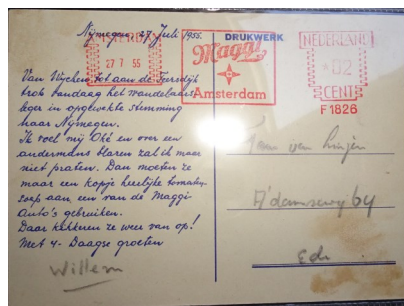 Nijmegen 27 Juli 1955.
AMSTERDAM
27 7 55
DRUKWERK
Maggi
Amsterdam
NEDERLAND
02
CENT
F 1826
Van Wijchen tot aan de Feersdijk
trok vandaag het wandelaars
leger in opgewekte stemming
naar Nijmegen.
Ik voel mij Oké en over een
andermans blaren zal ik maar
niet praten. Dan moeten ze
maar een kopje heerlijke tomaten-
soep aan een van de Maggi-
auto's gebruiken.
Daar kikkeren ze weer van op!
Met 4- Daagse groeten
Willem
Jaan van
A'damseweg 64
Ede